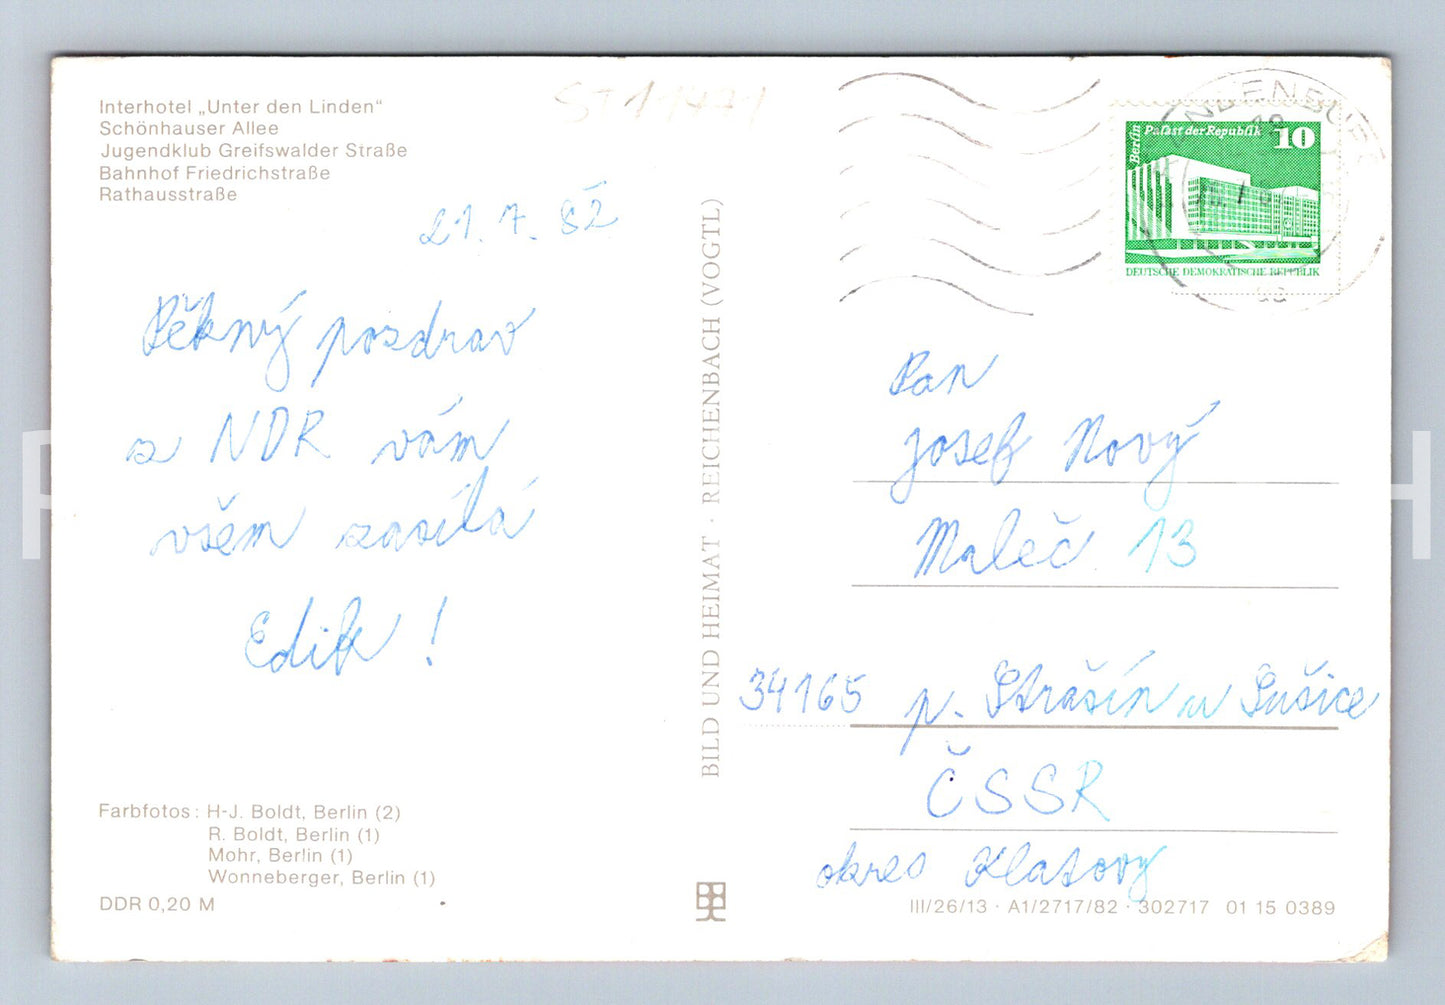 Interhotel „Unter den Linden“
Schönhauser Allee
Jugendklub Greifswalder Straße
Bahnhof Friedrichstraße
Rathausstraße
21. 7. 82
Pěkný pozdrav
z NDR vám
všem zasílá
Edik !
Farbfotos: H-J. Boldt, Berlin (2)
R. Boldt, Berlin (1)
Mohr, Berlin (1)
Wonneberger, Berlin (1)
DDR 0,20 M
BILD UND HEIMAT · REICHENBACH (VOGTL)
Berlin
Palast der Republik 10
DEUTSCHE DEMOKRATISCHE REPUBLIK
Pan
Josef Nový
Maleč 13
34165 p. Strašín u Sušice
ČSSR
okres Klatovy
III/26/13 · A1/2717/82 · 302717 01 15 0389